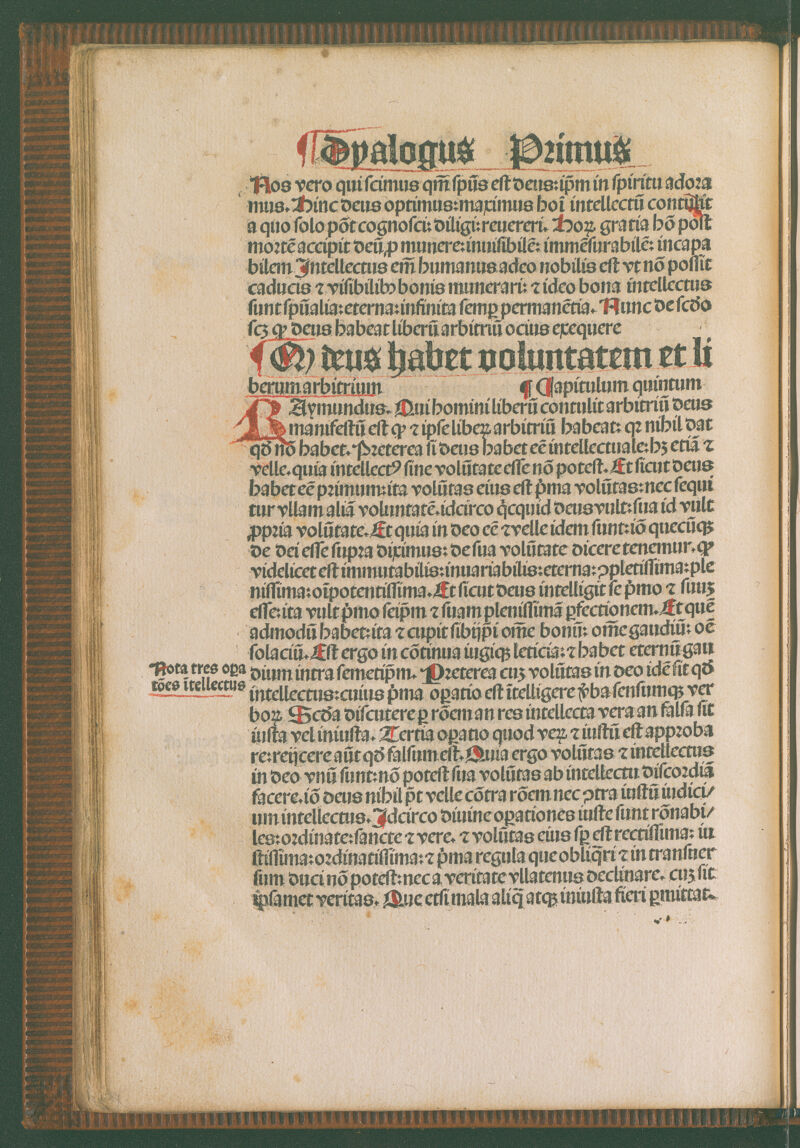 ¶ Dyalogus Primus
Nos vero qui scimus qm̄ spūs est deus: ip̄m in spiritu adora
mus. Hinc deus optimus: maximus hoī intellectū contulit
a quo solo pōt cognosci: diligi: reuereri. Hoꝝ gratia hō post
mortē accipit deū ꝓ munere: inuisibilē: immēsurabilē: incapa
bilem Intellectus em̄ humanus adeo nobilis est vt nō possit
caducis ⁊ visibilibꝰ bonis munerari: ⁊ ideo bona intellectus
sunt spūalia: eterna: infinita semꝑ permanētia. Nunc de scd̄o
scꝫ ꝙ deus habeat liberū arbitriū ocius exequere
¶ Q̄ deus habet voluntatem et li
berum arbitrium ¶ Capitulum quintum
RAymundus. Qui homini liberū contulit arbitriū deus
manifestū est ꝙ ⁊ ipse libeꝝ arbitriū habeat: qꝛ nihil dat
qd̄ nō habet. Preterea si deus habet eē intellectuale: hꝫ etiā ⁊
velle. quia intellectꝰ sine volūtate esse nō potest. Et sicut deus
habet eē primum: ita volūtas eius est p̄ma volūtas: nec sequi
tur vllam aliā voluntatē. idcirco q̇cquid deus vult: sua id vult
ꝓpria volūtate. Et quia in deo eē ⁊ velle idem sunt: iō quecūqꝫ
de dei esse supra diximus: de sua volūtate dicere tenemur. ꝙ
videlicet est immutabilis: inuariabilis: eterna: ꝯpletissima: ple
nissima: oīpotentissima. Et sicut deus intelligit se p̄mo ⁊ suuꝫ
esse: ita vult p̄mo seip̄m ⁊ suam plenissimā ꝑfectionem. Et quē
admodū habet: ita ⁊ cupit sibijp̄i om̄e bonū: om̄e gaudiū: oē
solaciū. Est ergo in cōtinua iugiqꝫ leticia: ⁊ habet eternū gau
Nota tres oꝑa
tōes ītellectus
dium intra semetip̄m. Preterea cuꝫ volūtas in deo idē sit qd̄
intellectus: cuius p̄ma oꝑatio est ītelligere v̄ba sensumqꝫ ver
boꝝ. Scd̄a discutere ꝑ rōem an res intellecta vera an falsa sit
iusta vel iniusta. Tertia oꝑatio quod veꝝ ⁊ iustū est approba
re: reijcere aūt qd̄ falsum est. Quia ergo volūtas ⁊ intellectus
in deo vnū sunt: nō potest sua volūtas ab intellectu discordiā
facere. iō deus nihil p̄t velle cōtra rōem nec ꝯtra iustū iudici/
um intellectus. Idcirco diuine oꝑationes iuste sunt rōnabi/
les: ordinate: sancte ⁊ vere. ⁊ volūtas eius sꝑ est rectissima: iu
stissima: ordinatissima: ⁊ p̄ma regula que obliq̄ri ⁊ in transuer
sum duci nō potest: nec a veritate vllatenus declinare. cuꝫ sit
ip̄samet veritas. Que etsi mala aliq̄ atqꝫ iniusta fieri ꝑmittat.